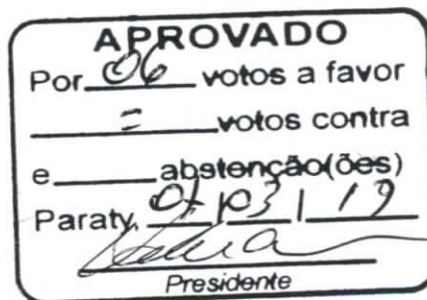 APROVADO
Por 06 votos a favor
= votos contra
e abstenção(ões)
Paraty, /03/19
Presidente